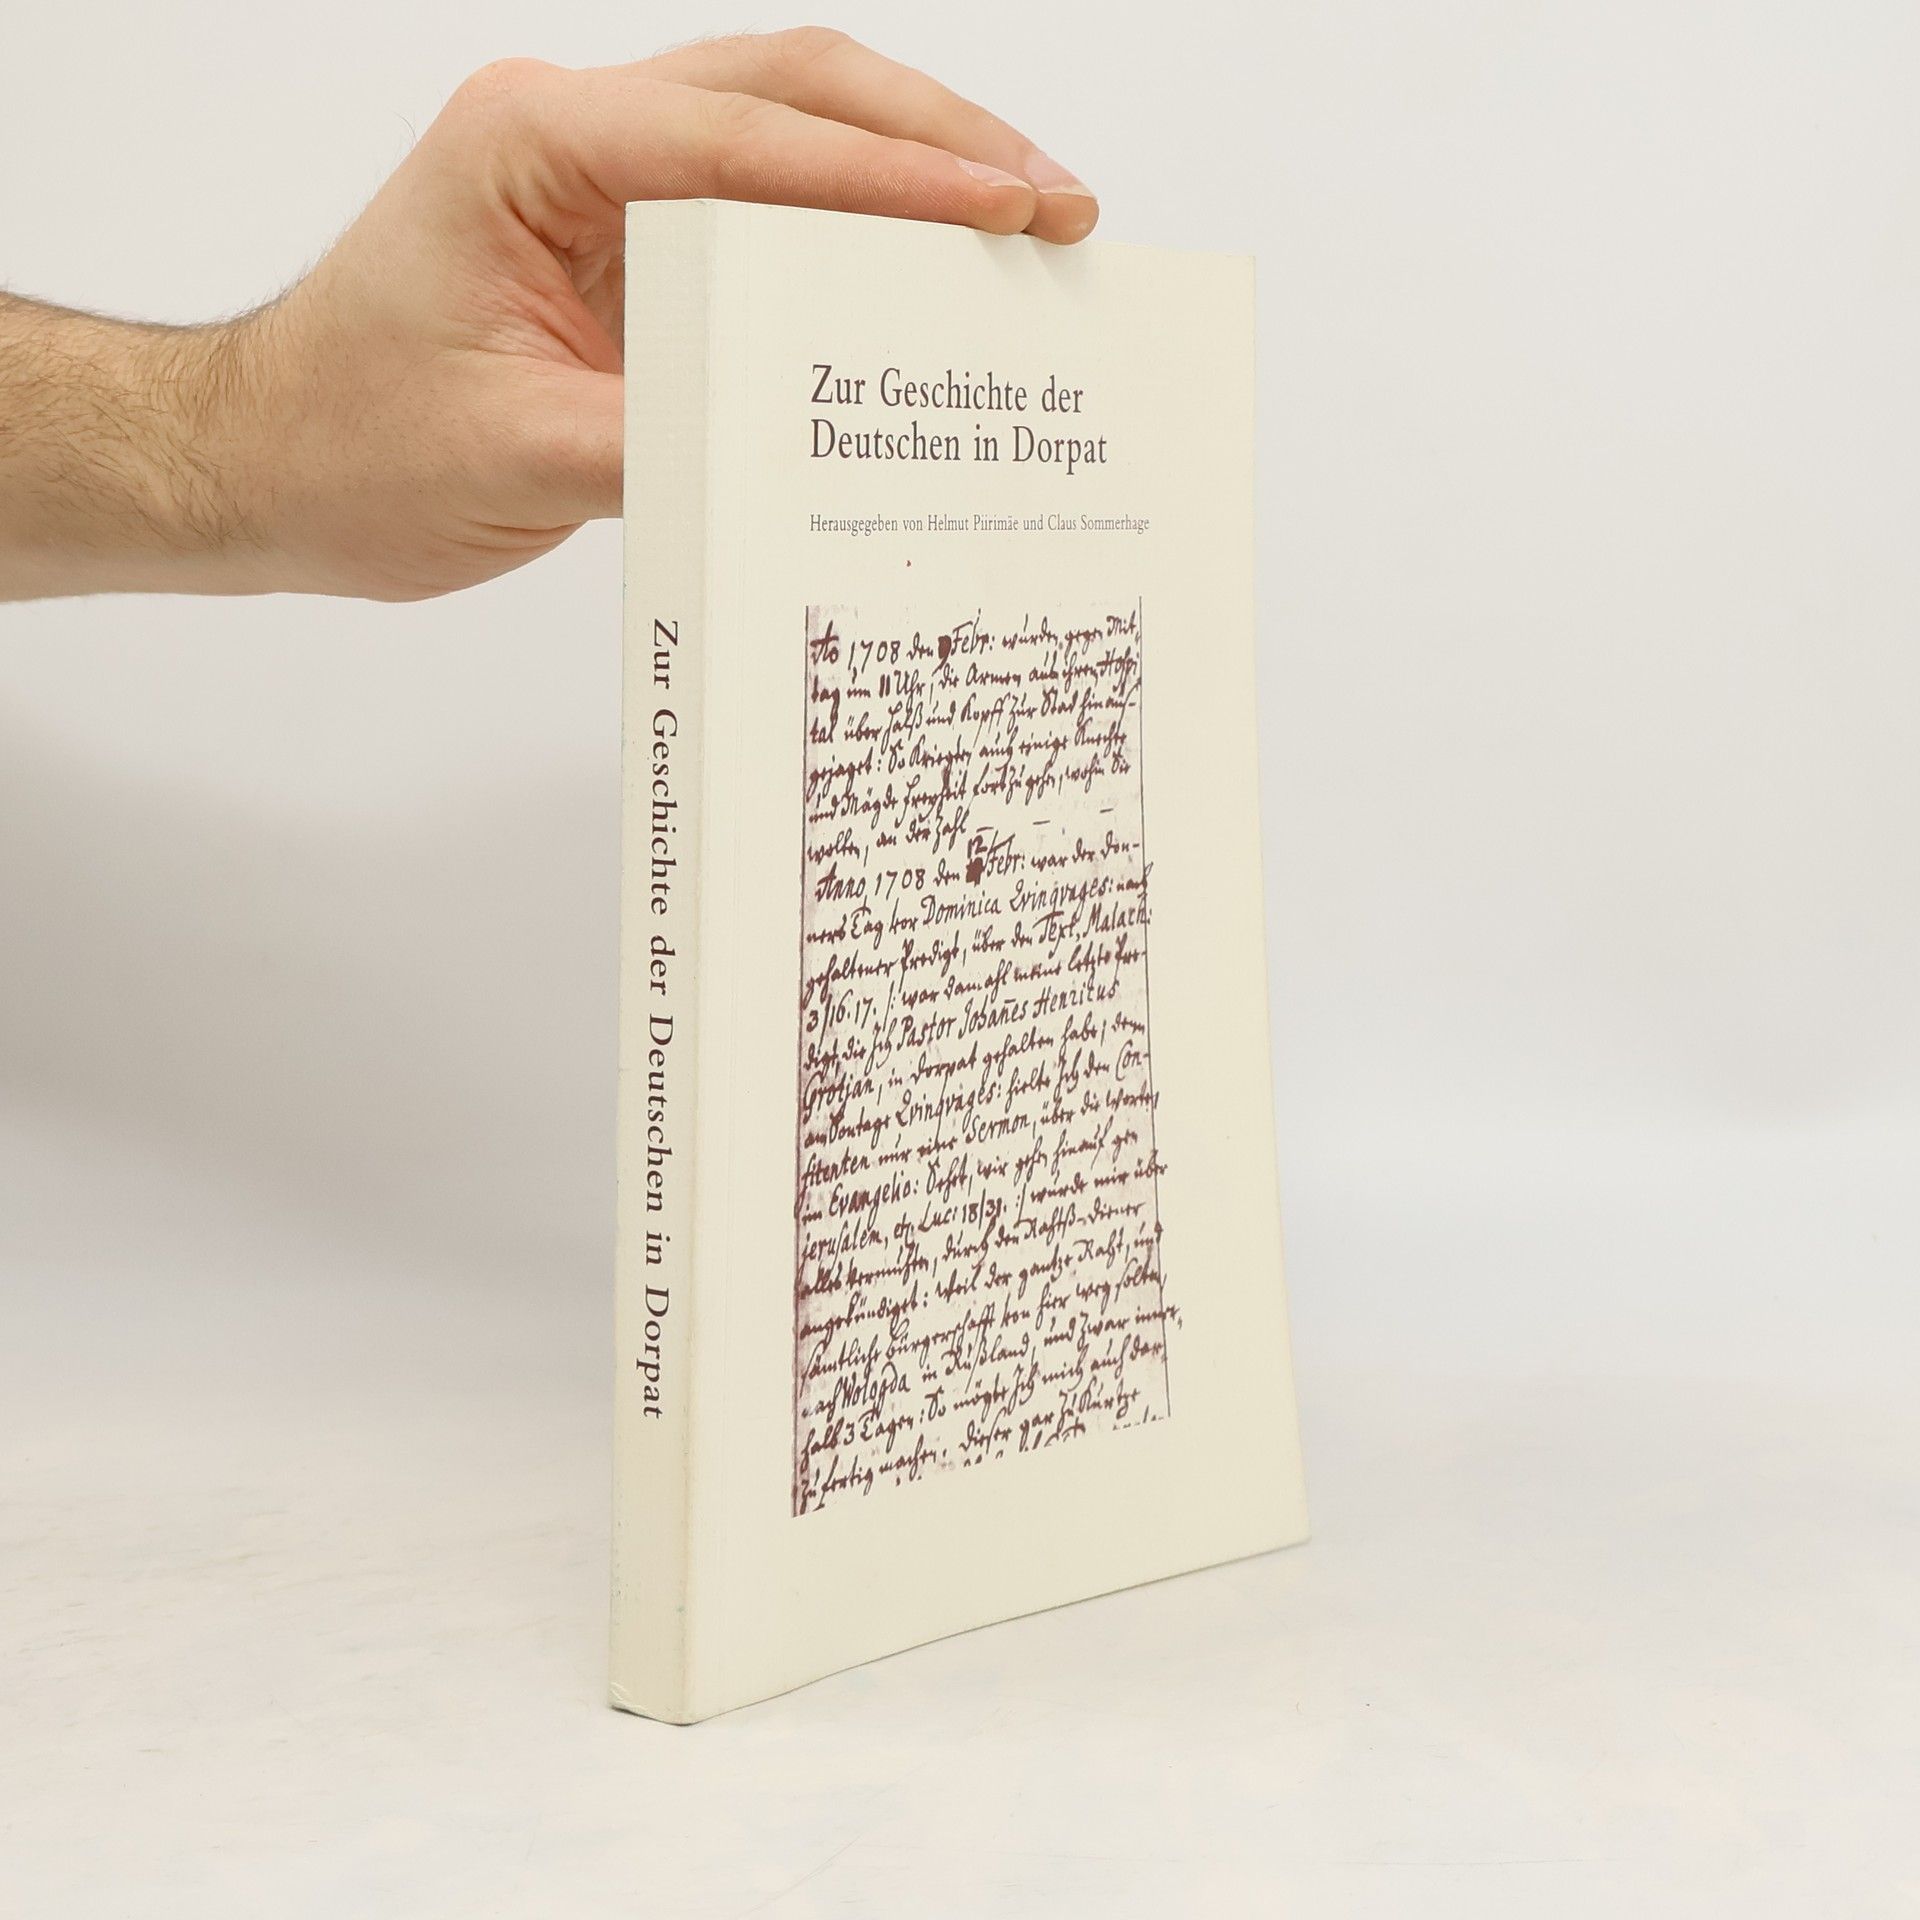 Zur Geschichte der
Deutschen in Dorpat
Herausgegeben von Helmut Piirimäe und Claus Sommerhage
Ao 1708 den 9 Febr: wurden gegen Mit,
tag um 11 Uhr, die Armen aus ihren Hospi
tal über Halß und Kopff zur Stad hinauß-
gejaget: So kriegten auch einige Knechte
und Mägde freyheit fortzugehen, wohin Sie
wolten, an der Zahl — — —
Anno, 1708 den 12 Febr: war der Don-
ners Tag vor Dominica Qvinqvages: nach
gehaltener Predigt, über den Text, Malach:
3/16.17. /: war damahl meine letzte Pre-
digt, die Ich Pastor Johan̄es Henricus
Grotjan, in Dorpat gehalten habe; denn
am Sontage Qvinqvages: hielte Ich den Con-
fitenten nur eine Sermon, über die Worten
im Evangelio: Sehet, wir gehen hinauf gen
Jerusalem, etc. Luc: 18/31. :/ wurde mir über
alles vermuhten, durch den Rahtß-diener
angekündiget: weil der gantze Raht, und
sämtliche Bürgerschafft von hier weg solten,
nach Wologda in Rußland, und zwar inner,
halb 3 Tagen: So mögte Ich mich auch dar-
zu fertig machen. dieser gar zu kurtze
Zur Geschichte der Deutschen in Dorpat